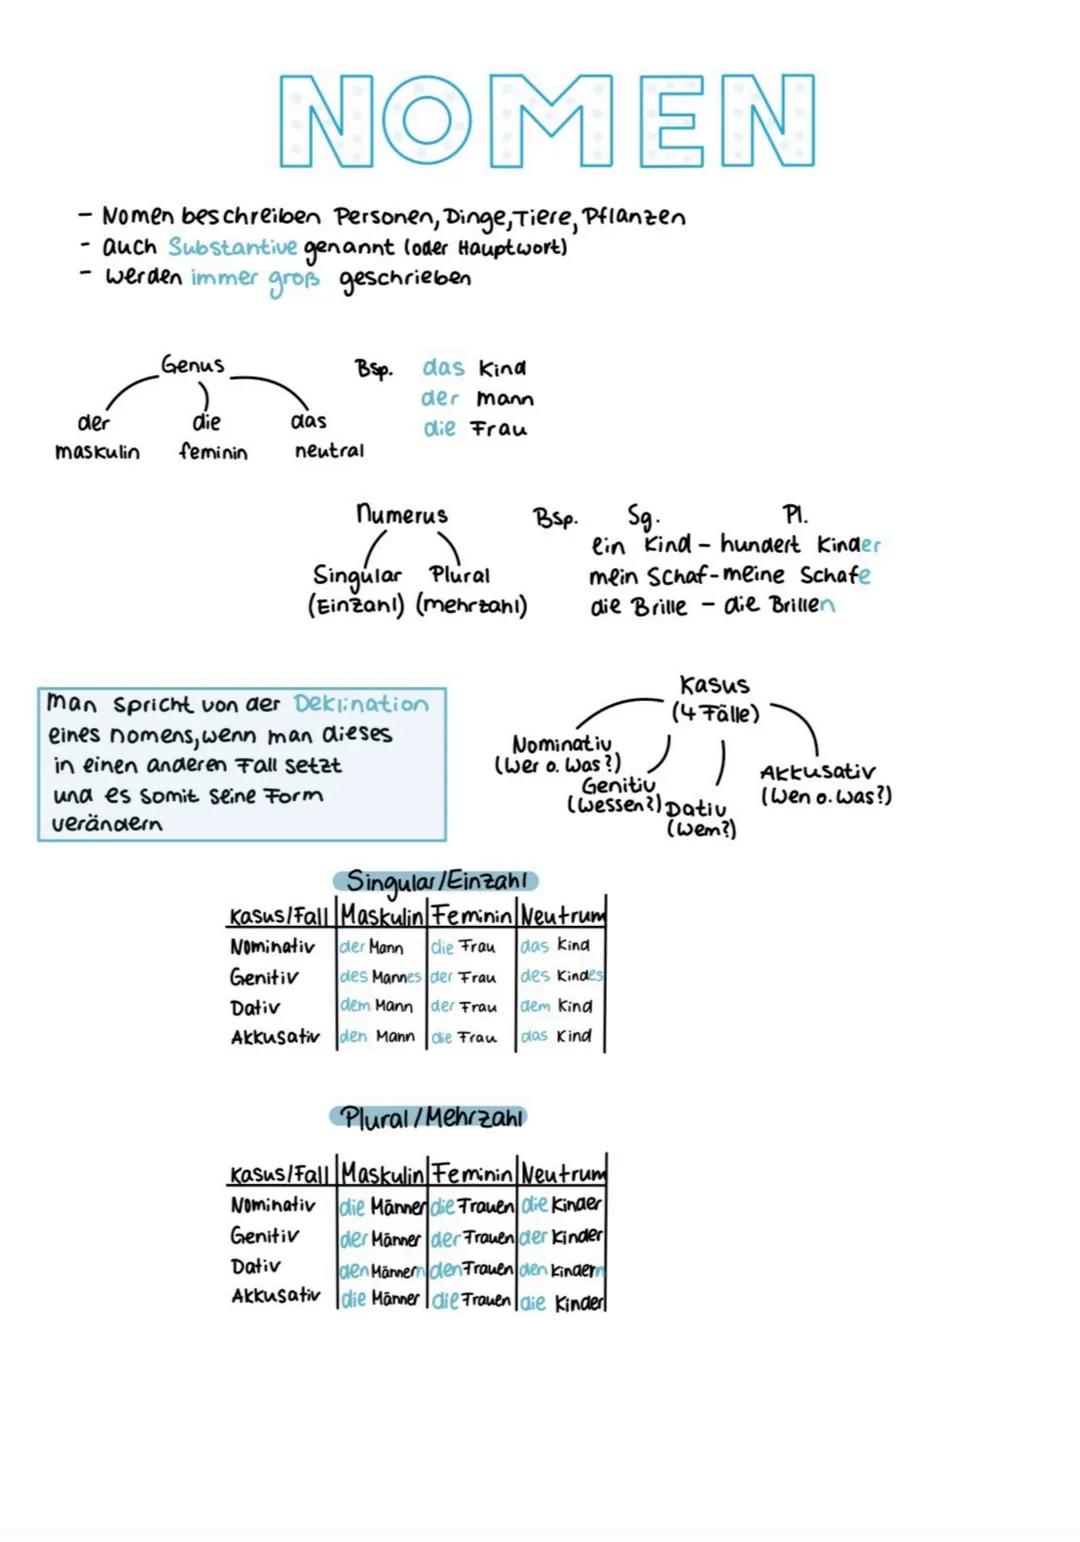 NOMEN
- Nomen beschreiben Personen, Dinge, Tiere, Pflanzen
- auch Substantive genannt (oder Hauptwort)
- werden immer groß geschrieben
Genus
der die das
maskulin feminin neutral
Bsp. das Kind
der Mann
die Frau
Numerus
Singular Plural
(Einzahl) (Mehrzahl)
Bsp. Sg. Pl.
ein Kind - hundert Kinder
mein Schaf - meine Schafe
die Brille - die Brillen
Man spricht von der Deklination
eines Nomens, wenn man dieses
in einen anderen Fall setzt
und es somit seine Form
verändern
Kasus
(4 Fälle)
Nominativ
(Wer o. Was?)
Genitiv
(Wessen?)
Dativ
(Wem?)
Akkusativ
(Wen o. Was?)
Singular/Einzahl
Kasus/Fall Maskulin Feminin Neutrum
Nominativ der Mann die Frau das Kind
Genitiv des Mannes der Frau des Kindes
Dativ dem Mann der Frau dem Kind
Akkusativ den Mann die Frau das Kind
Plural/Mehrzahl
Kasus/Fall Maskulin Feminin Neutrum
Nominativ die Männer die Frauen die Kinder
Genitiv der Männer der Frauen der Kinder
Dativ den Männern den Frauen den Kindern
Akkusativ die Männer die Frauen die Kinder